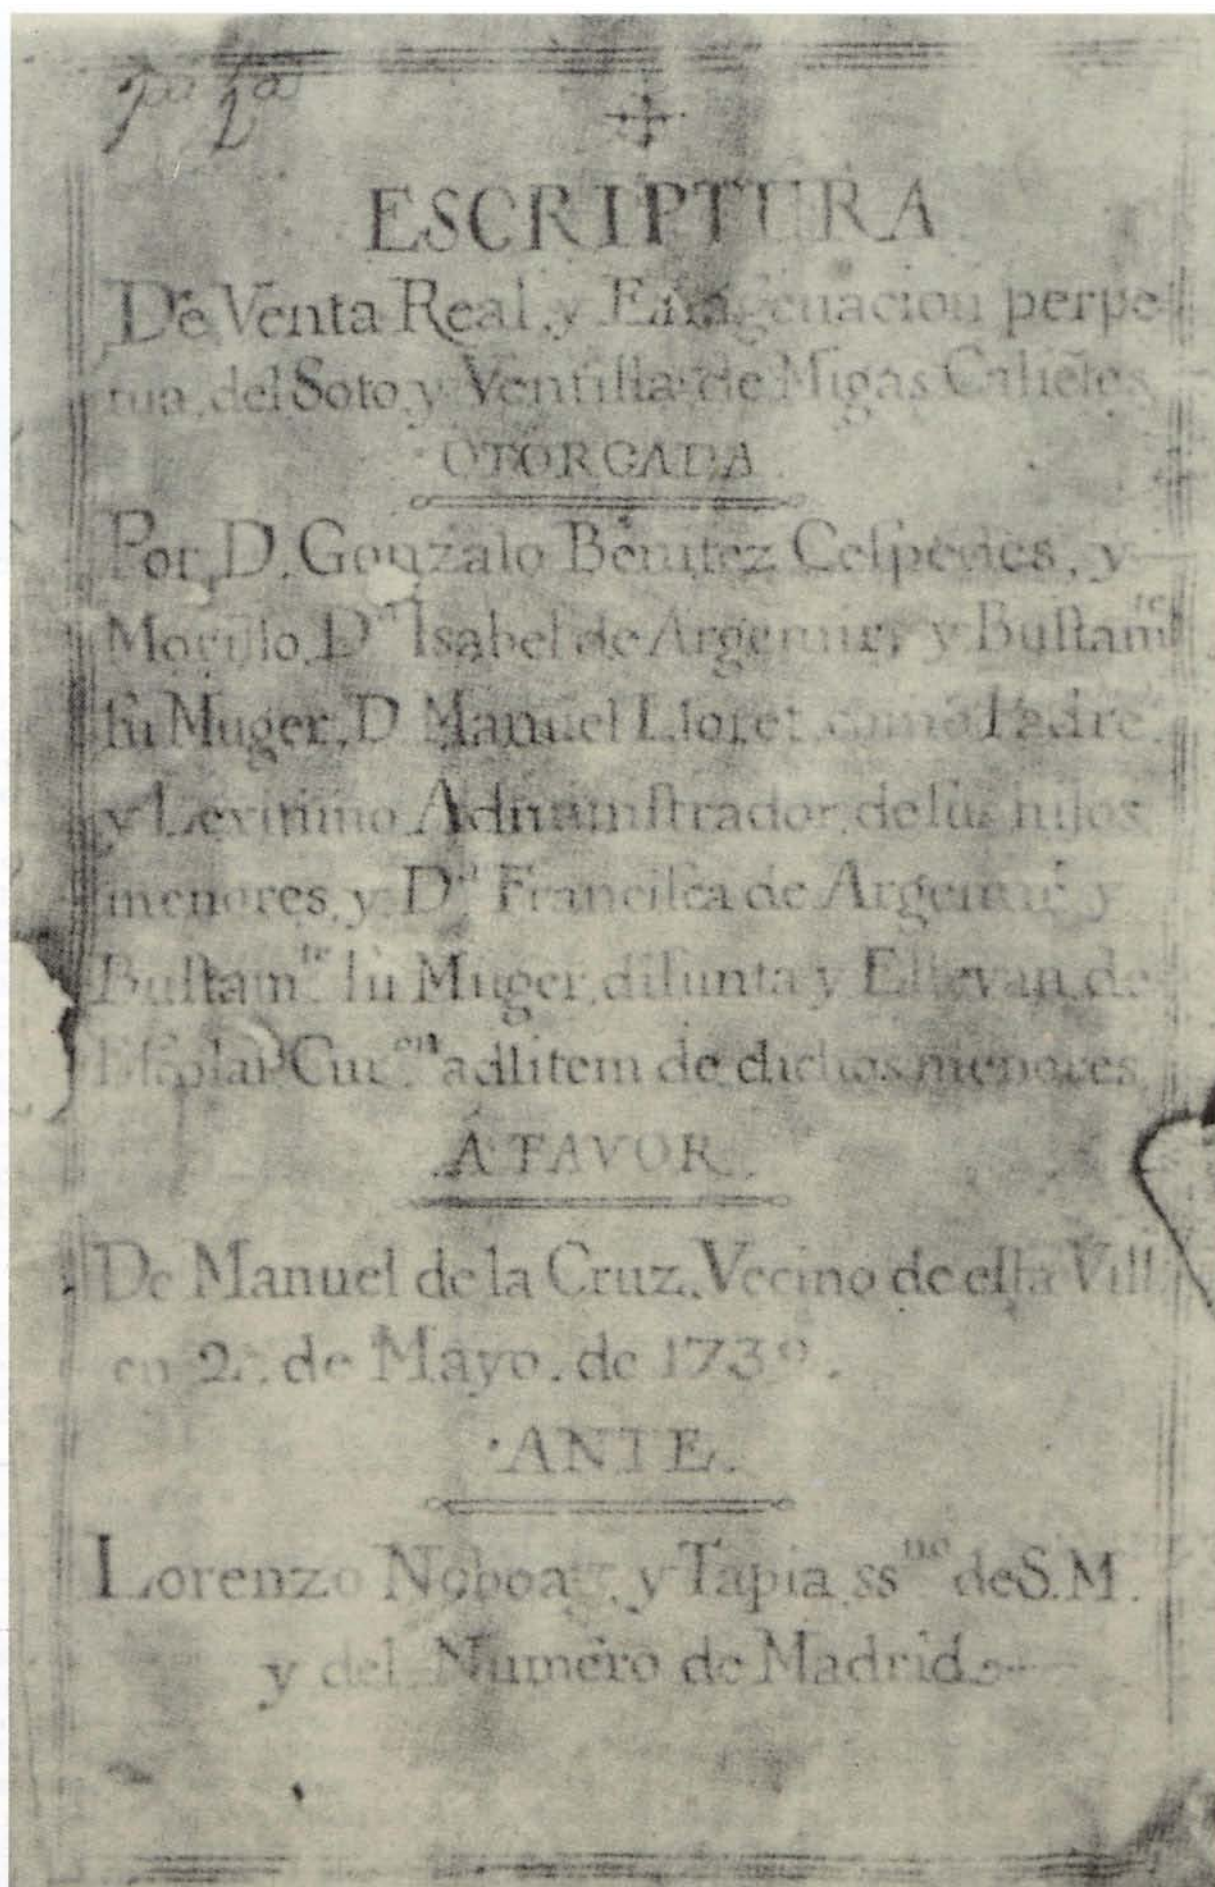 ESCRIPTURA
De Venta Real, y Enagenacion perpe-
tua, del Soto, y Ventilla de Migas Calietes
OTORGADA
Por, D. Gonzalo Benitez Cespedes, y
Morillo, Dª Isabel de Argemir, y Bustamᵗᵉ
su Muger, D Manuel Lloret, como Padre,
y Lexitimo Administrador, de sus hijos
menores, y Dª Francisca de Argemir, y
Bustamᵗᵉ su Muger, difunta y Estevan, de
adlitem de dichos menores
A FAVOR.
De Manuel de la Cruz, Vecino de esta Vill
en de Mayo, de
ANTE.
Lorenzo Noboa, y Tapia, ssⁿᵒ de S.M.
y del Numero de Madrid